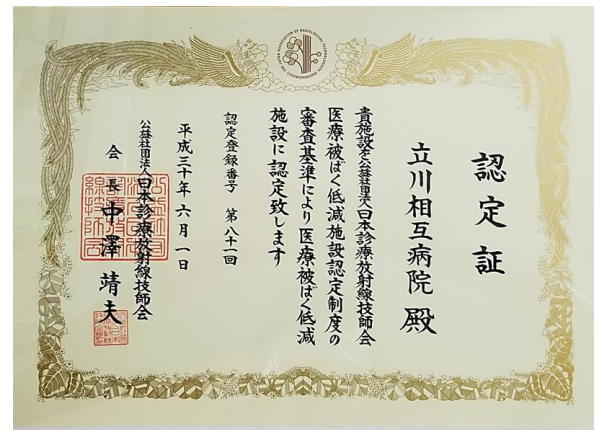 認定証
立川相互病院 殿
貴施設を公益社団法人日本診療放射線技師会
医療被ばく低減施設認定制度の
審査基準により医療被ばく低減
施設に認定致します
認定登録番号 第八十一回
平成三十年六月一日
公益社団法人日本診療放射線技師会
会長 中澤靖夫